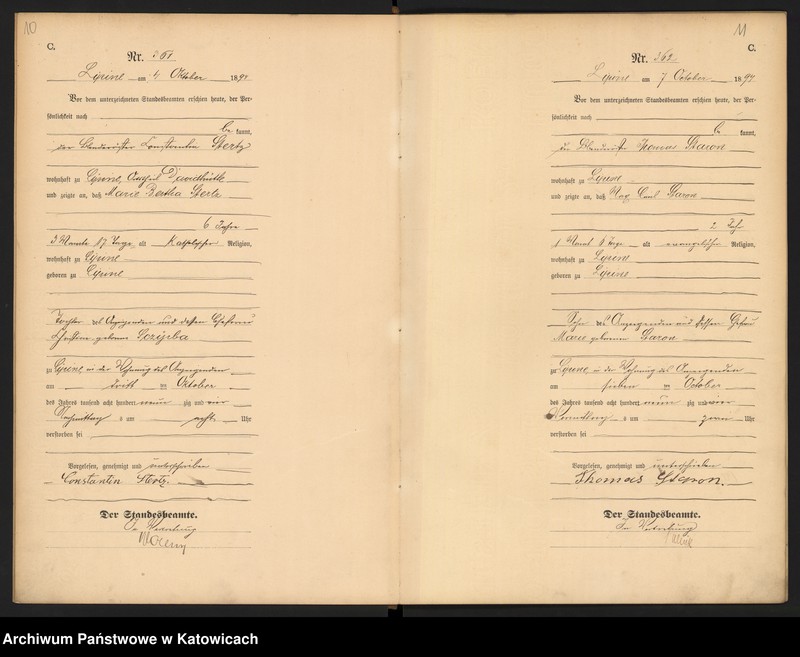 10
C.
Nr. 361
Lipine am 4 Oktober 1894
Vor dem unterzeichneten Standesbeamten erschien heute, der Per-
sönlichkeit nach
be kannt,
der Constantin Stertz
wohnhaft zu Lipine,
und zeigte an, daß Marie Bertha Stertz
6 Jahre
3 Monate 17 Tage alt katholischer Religion,
wohnhaft zu Lipine
geboren zu Lipine
Tochter des Anzeigenden und dessen Ehefrau
geborene
zu Lipine in der Wohnung des Anzeigenden
am dritten Oktober
des Jahres tausend acht hundert neun zig und vier
Nachmittag s um acht Uhr
verstorben sei
Vorgelesen, genehmigt und unterschrieben
Constantin Stertz.
Der Standesbeamte.
In Vertretung
11
C.
Nr. 362
Lipine am 7 October 1894
Vor dem unterzeichneten Standesbeamten erschien heute, der Per-
sönlichkeit nach
be kannt,
der Thomas Staron
wohnhaft zu Lipine
und zeigte an, daß Max Carl Staron
2 Jahr
1 Monat 6 Tage alt evangelischer Religion,
wohnhaft zu Lipine
geboren zu Lipine
Sohn des Anzeigenden und dessen Ehefrau
Marie geborene Staron
zu Lipine in der Wohnung des Anzeigenden
am sieben October
des Jahres tausend acht hundert neun zig und vier
Vormittag s um zwei Uhr
verstorben sei
Vorgelesen, genehmigt und unterschrieben
Thomas Staron.
Der Standesbeamte.
In Vertretung
Archiwum Państwowe w Katowicach